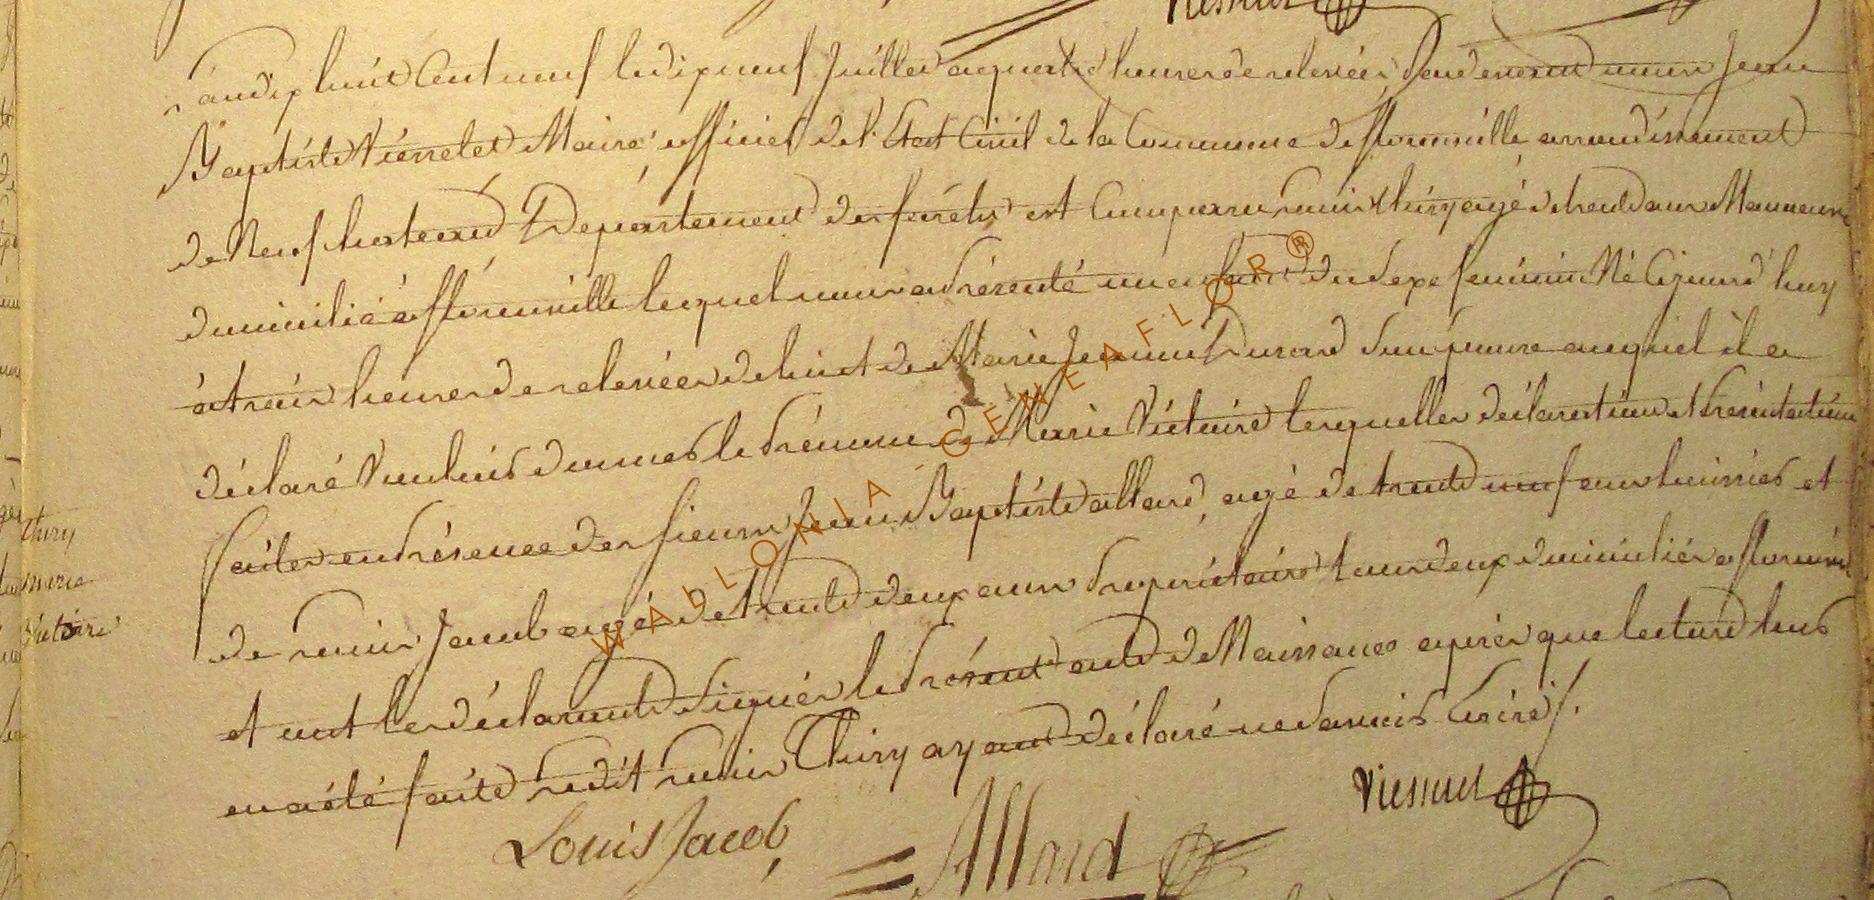 L'an dix huit Cent neuf le dix neuf Juillet a quatre heures de relevée, Pardevant nous Jean
Baptiste Viesselet Maire, officier de l'Etat Civil de la Commune de florenville arrondissement
de Neufchateau Departement des forêts est Comparu Louis thiry agé de trente ans Manoeuvre
domicilié a florenville lequel nous a Présenté un enfant du Sexe feminin Né Cejourd'huy
à trois heures de relevée de lui et de Marie Jeanne Durand Son épouse auquel il a
déclaré Vouloir donner le Prénoms de Marie Victoire lesquelles déclaration et Présentation
faites en Présence des Sieurs Jean Baptiste allard, agé de trente neuf ans huissier et
de Louis Jacob agé de trente deux ans Proprietaire tous deux domiciliés a florenville
et ont les déclarants Signés le Présent acte de Naissance après que lecture leur
en a été faite ledit Louis Thiry ayant déclaré ne Savoir Ecrire ./.
Thiry
marie
Victoire
Louis Jacob
Allard
WALLONIA-GENEAFLOR®